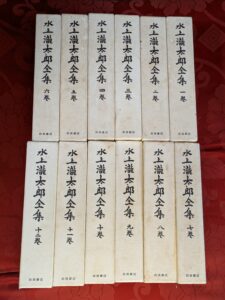 水上瀧太郎全集 一巻
岩波書店
水上瀧太郎全集 二巻
岩波書店
水上瀧太郎全集 三巻
岩波書店
水上瀧太郎全集 四巻
岩波書店
水上瀧太郎全集 五巻
岩波書店
水上瀧太郎全集 六巻
岩波書店
水上瀧太郎全集 七巻
岩波書店
水上瀧太郎全集 八巻
岩波書店
水上瀧太郎全集 九巻
岩波書店
水上瀧太郎全集 十巻
岩波書店
水上瀧太郎全集 十一巻
岩波書店
水上瀧太郎全集 十二巻
岩波書店